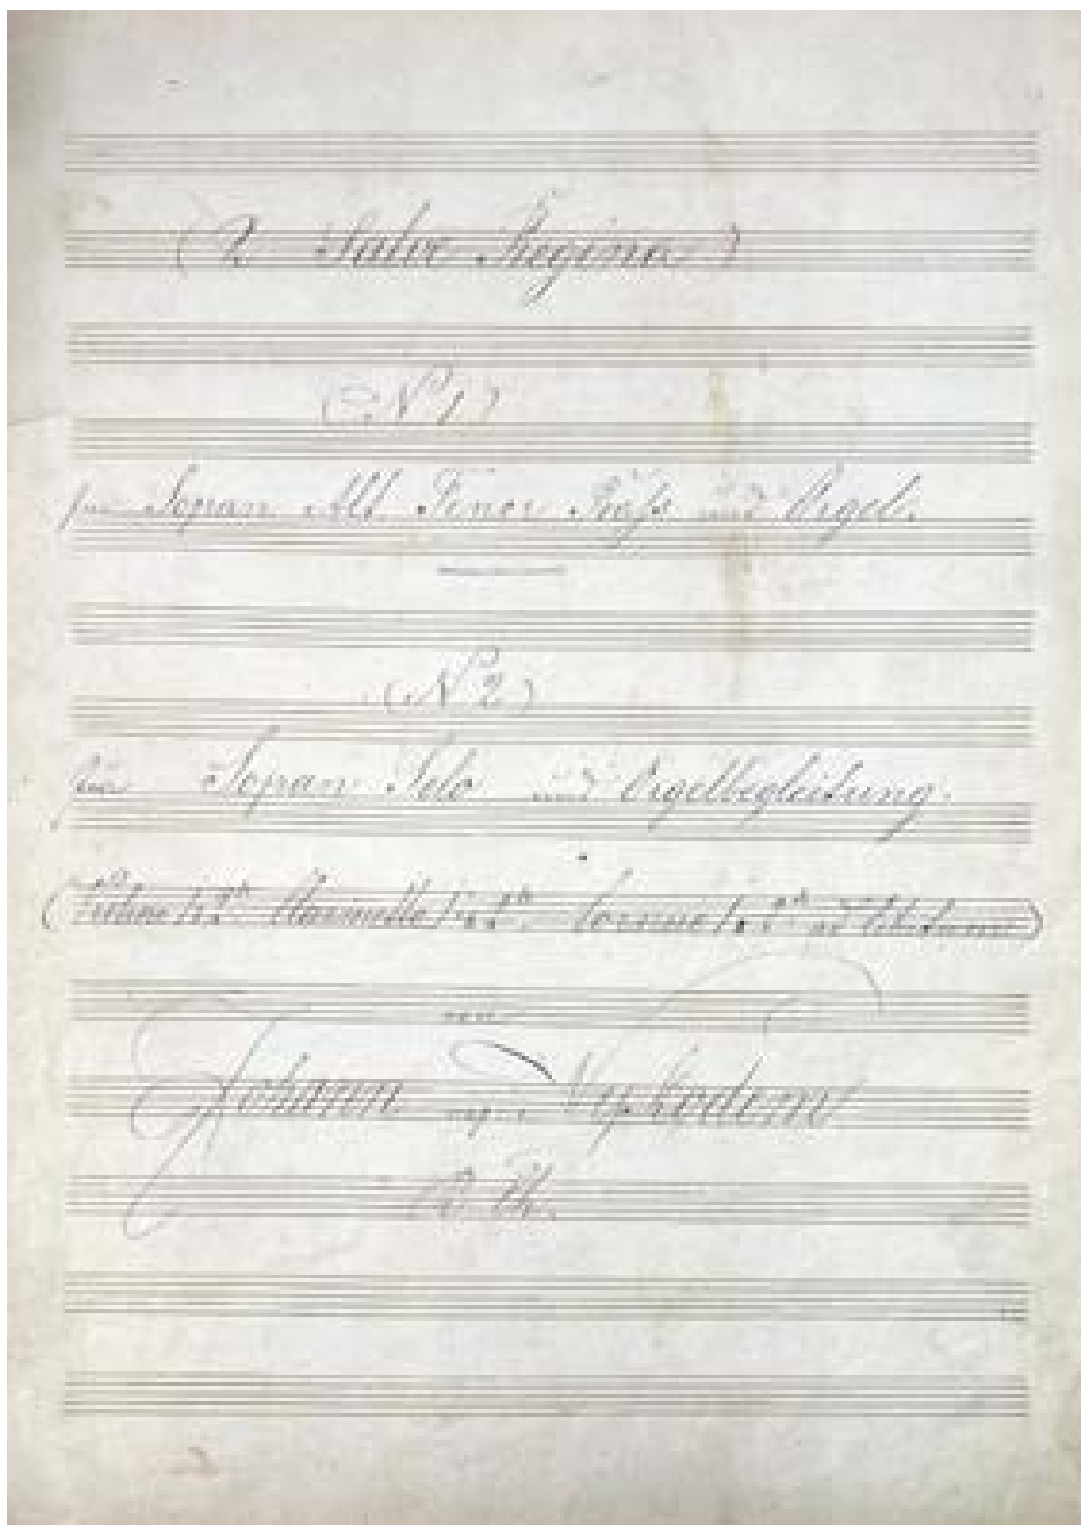 (2 Salve Regina)
(N° 1)
für Sopran Alt Tenor Bass und Orgel.
(N° 2)
für Sopran Solo und Orgelbegleitung.
( 1 & 2do Clarinetto 1 & 2do. Corni 1 & 2do ad libitum)
von
Johann Nepo